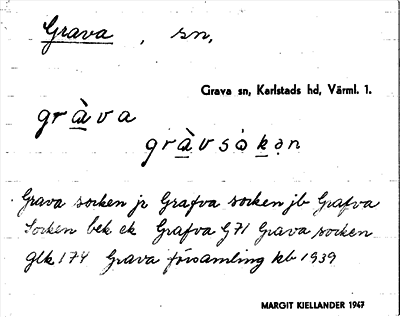 Grava , sn,
Grava sn, Karlstads hd, Värml. 1.
gràva
gràvsòkən
Grava socken jr Grafva socken jb Grafva
Socken bek ek Grafva G71 Grava socken
glk 174 Grava församling kb 1939
MARGIT KIELLANDER 1947